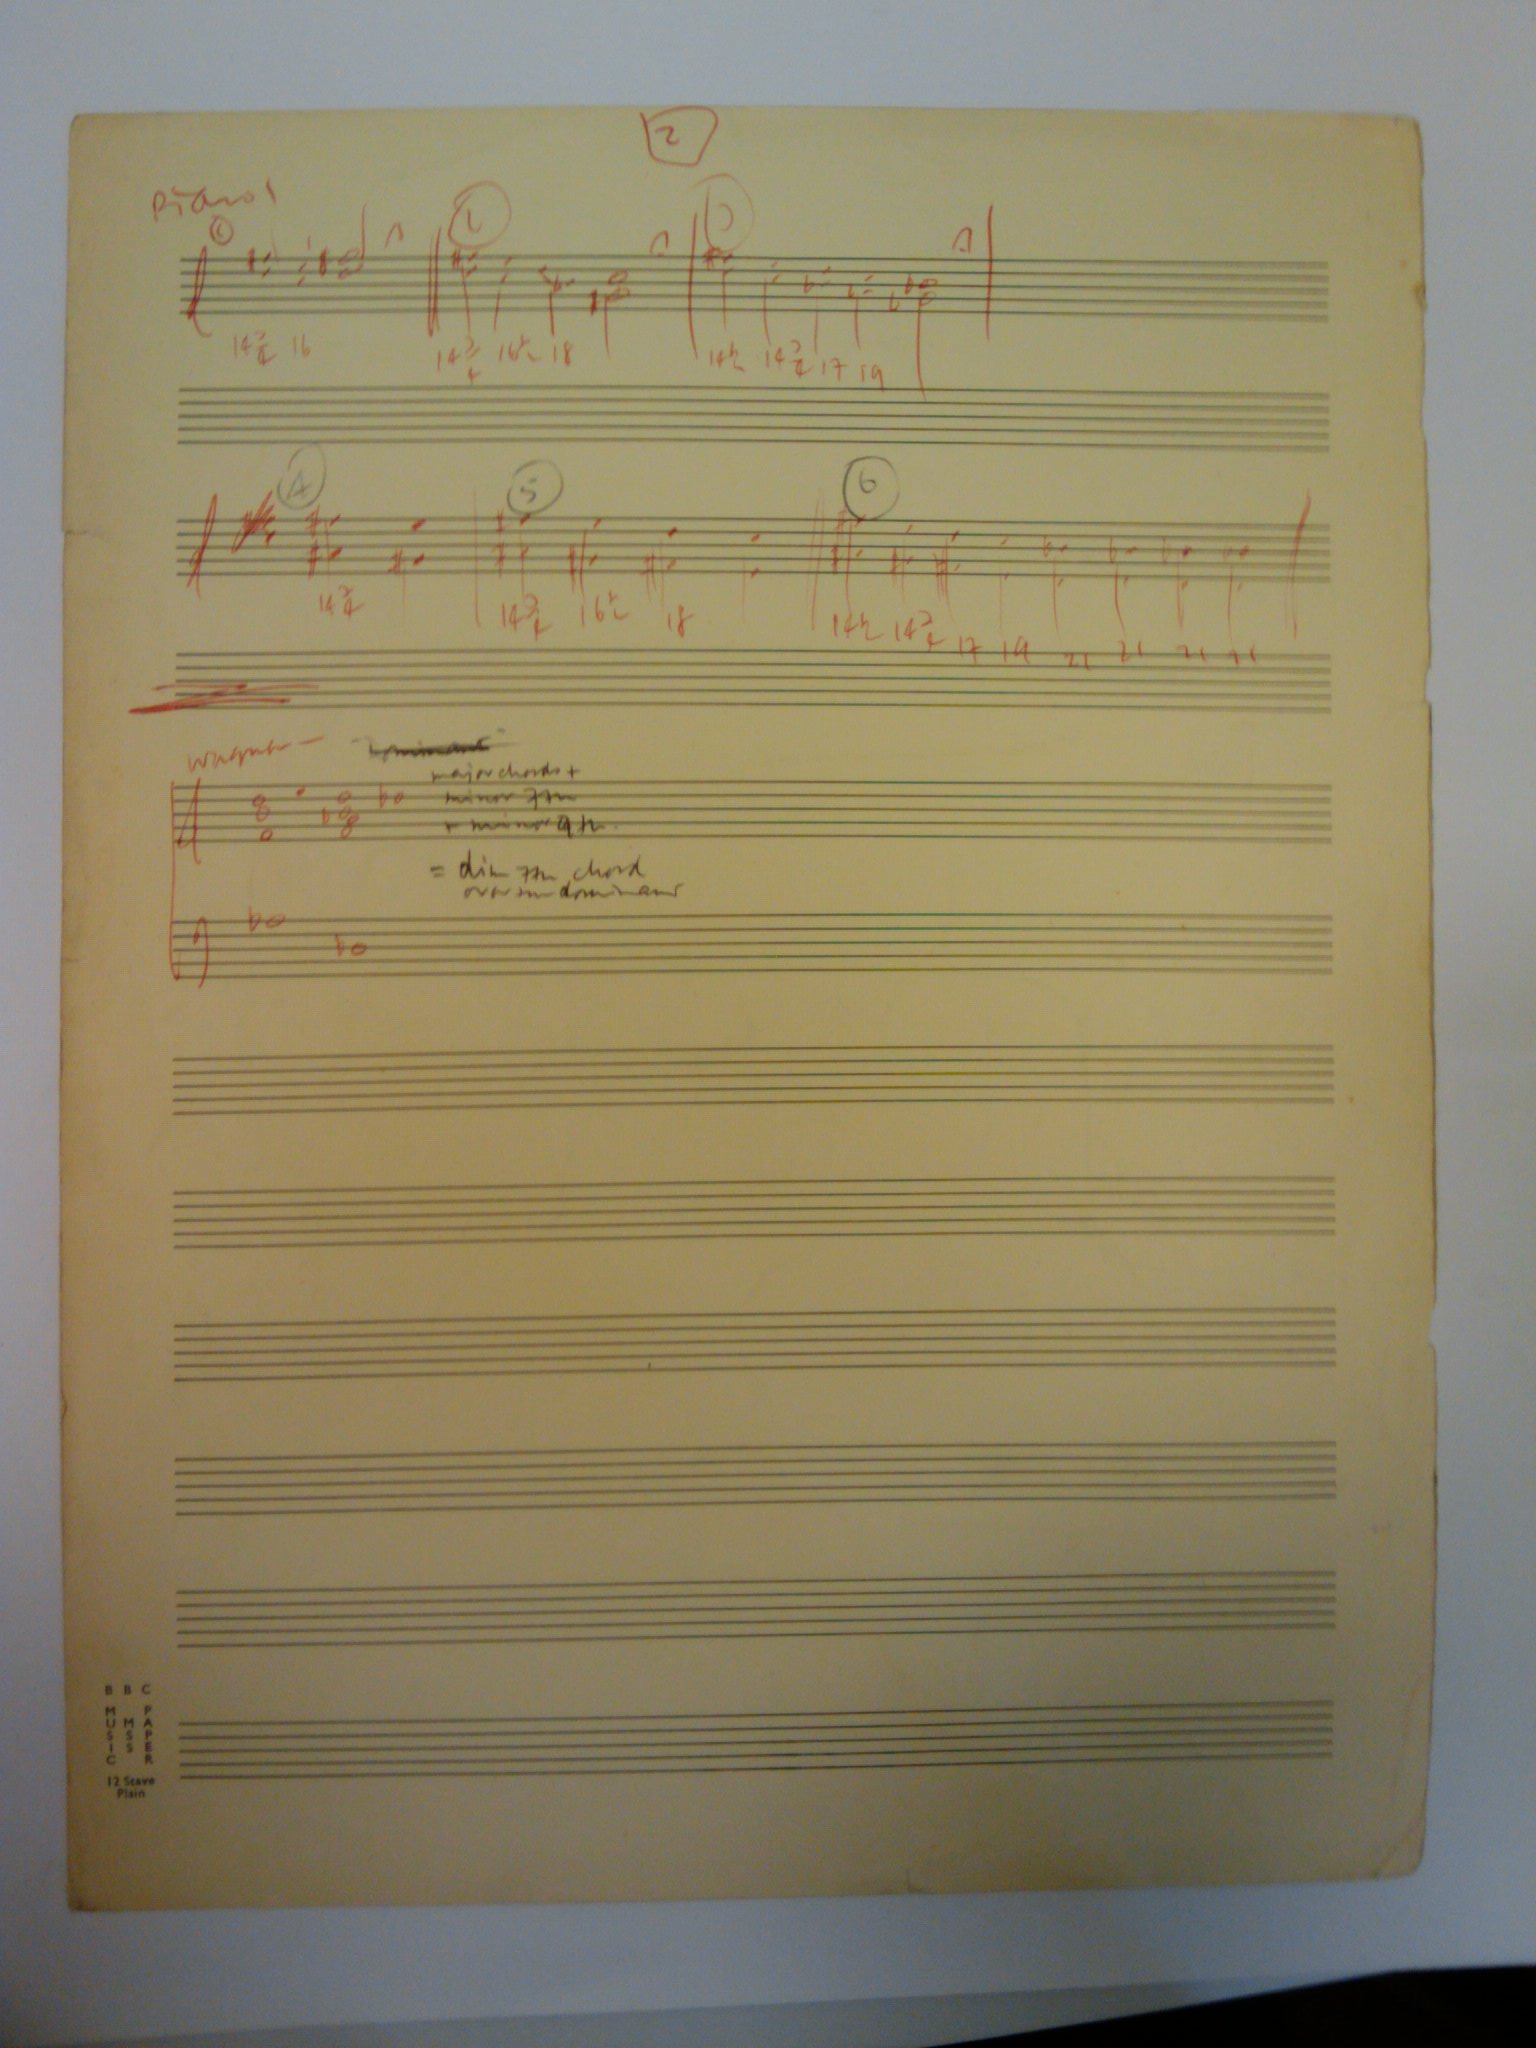 2
Piano 1
14 3/4 16 14 3/4 16½ 18 14½ 14 3/4 17 19
4 5 6
14 3/4 14 3/4 16½ 18 14½ 14 3/4 17 19 21 21 21 21
Wagner –
major chords +
minor 7th
+ minor 9th.
= dim 7th chord
over the dominant
BBC
MUSIC
MSS
PAPER
12 Stave
Plain